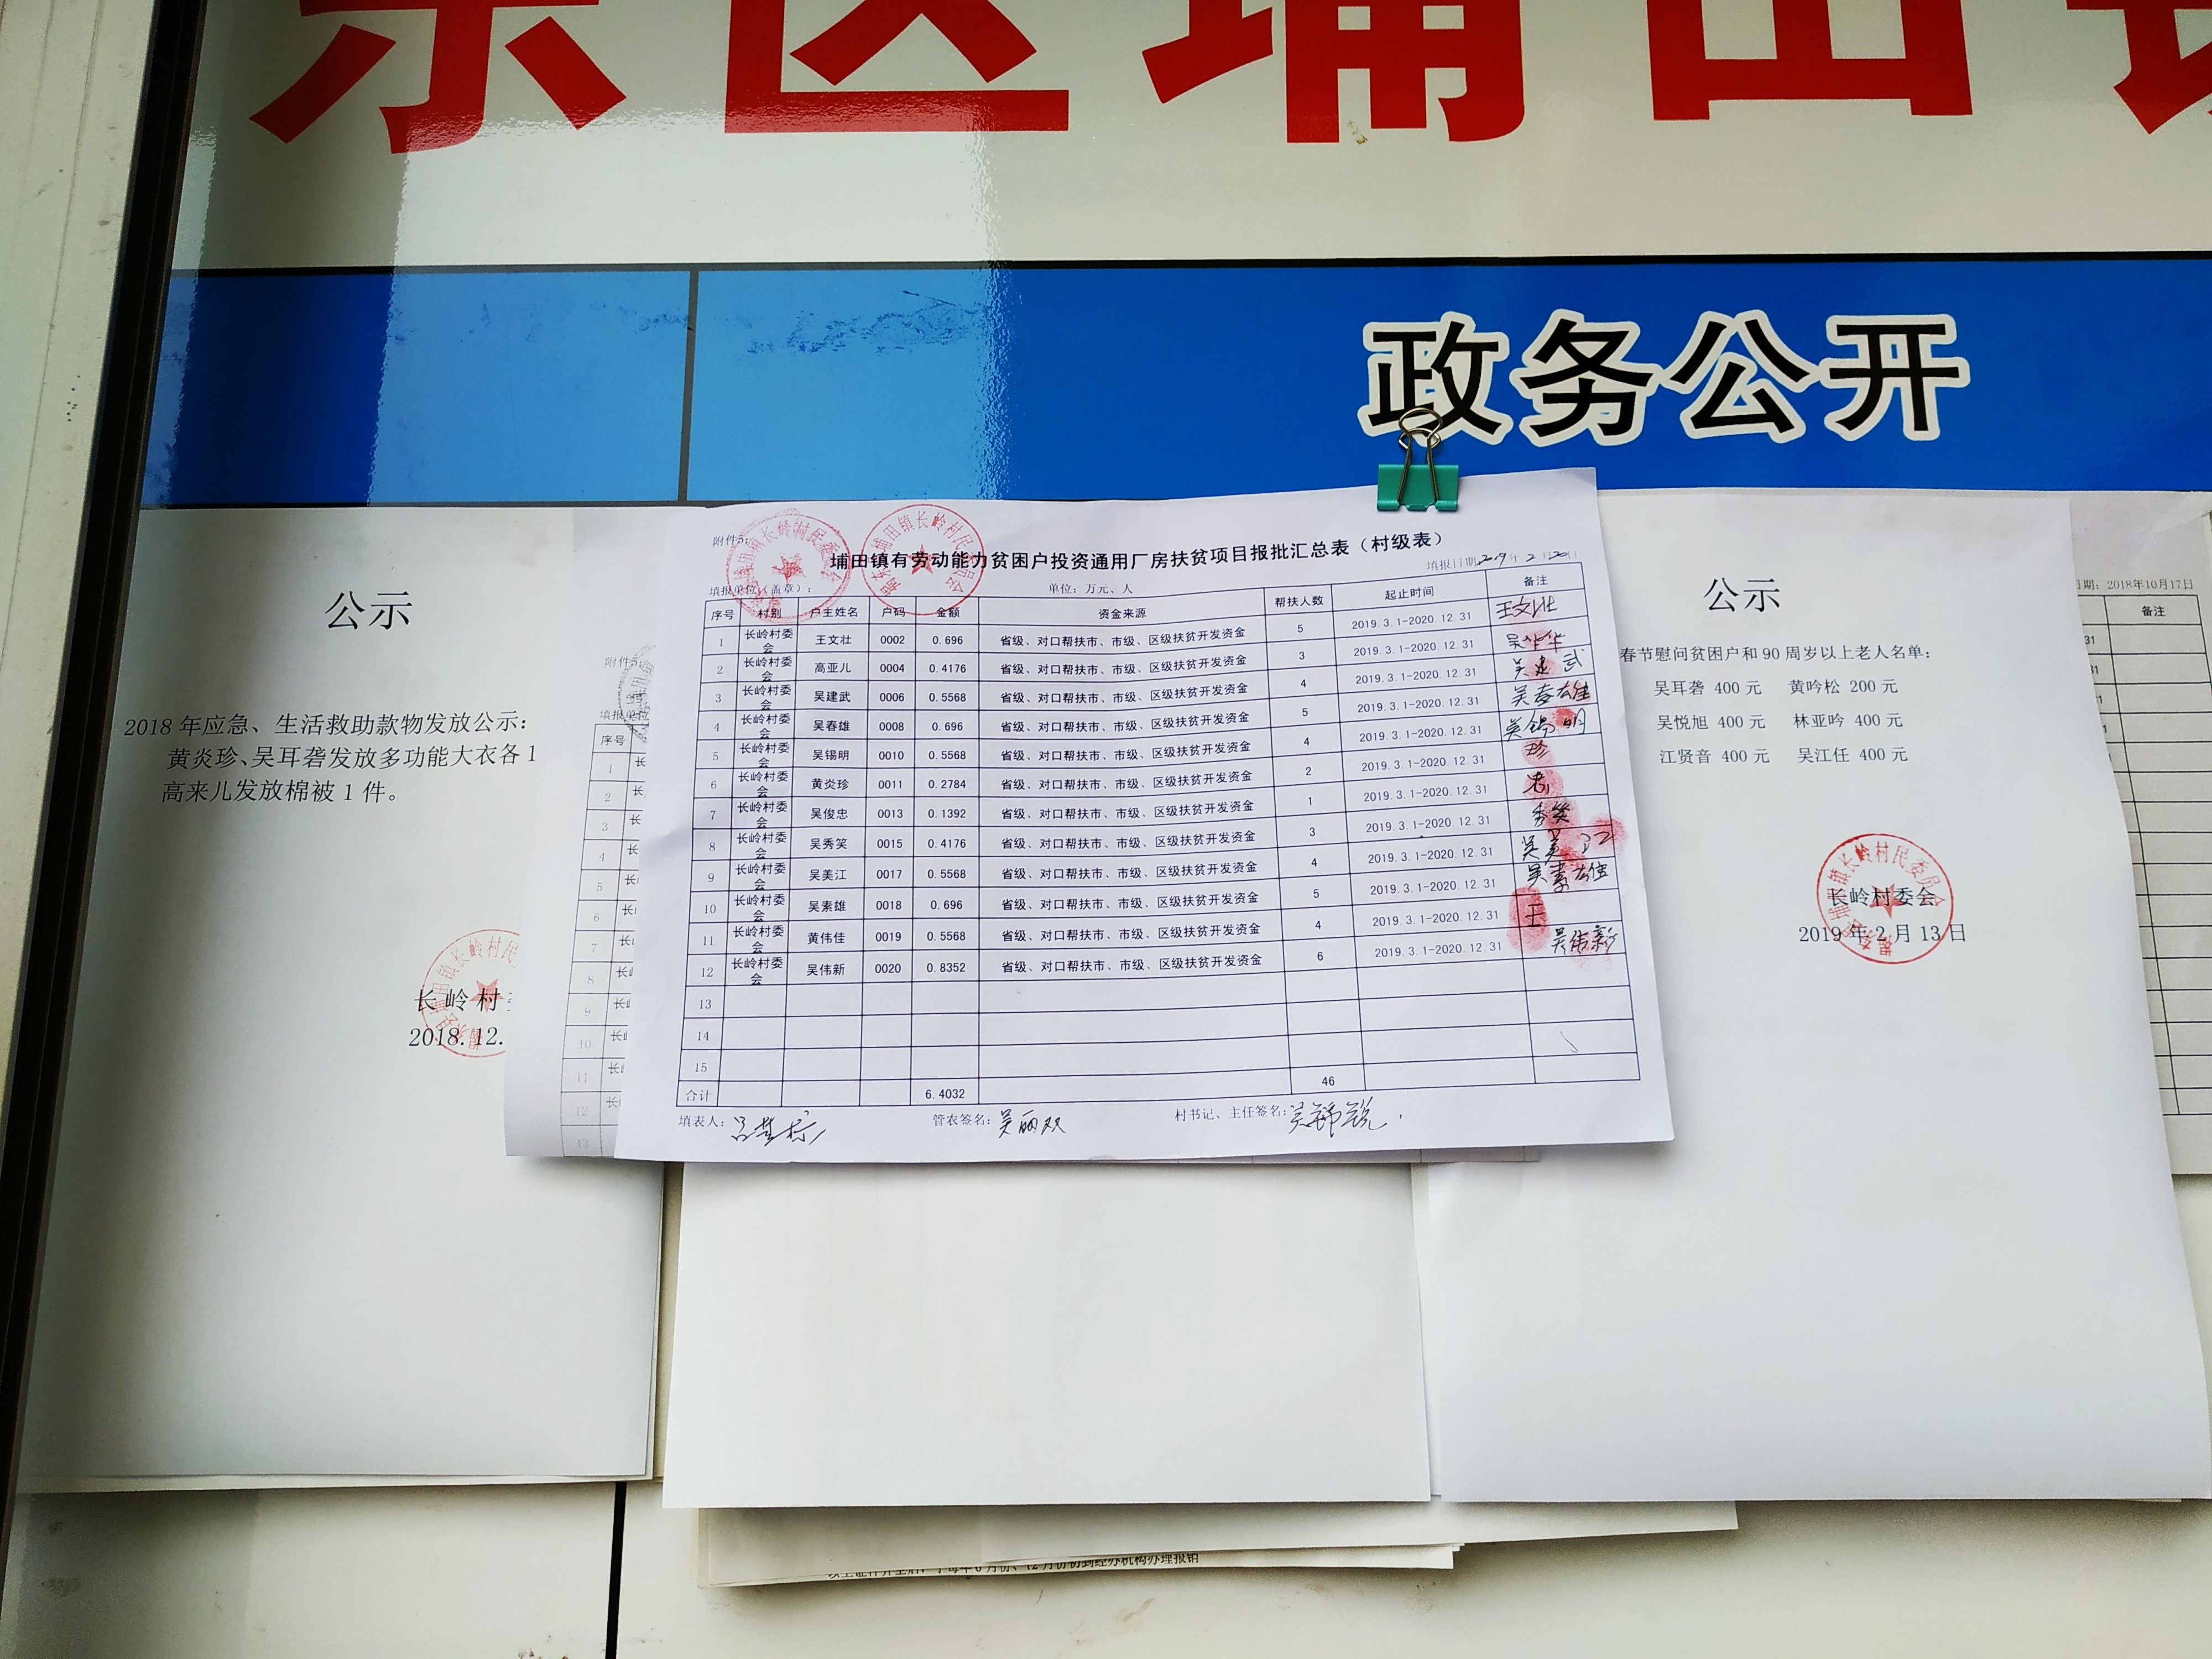 东区埔田镇
政务公开
公示
2018 年应急、生活救助款物发放公示：
黄炎珍、吴耳砻发放多功能大衣各 1
高来儿发放棉被 1 件。
长岭村
2018.12.
附件5:
填报单位
序号
1 长
2 长
3 长
4 长
5 长
6 长
7 长
8 长
9 长
10 长
11 长
12 长
13
附件5:
埔田镇有劳动能力贫困户投资通用厂房扶贫项目报批汇总表（村级表）
填报单位（盖章）： 单位：万元、人 填报日期 2019年 2 20
序号 村别 户主姓名 户码 金额 资金来源 帮扶人数 起止时间 备注
1 长岭村委会 王文壮 0002 0.696 省级、对口帮扶市、市级、区级扶贫开发资金 5 2019.3.1-2020.12.31 王文壮
2 长岭村委会 高亚儿 0004 0.4176 省级、对口帮扶市、市级、区级扶贫开发资金 3 2019.3.1-2020.12.31
3 长岭村委会 吴建武 0006 0.5568 省级、对口帮扶市、市级、区级扶贫开发资金 4 2019.3.1-2020.12.31 吴建武
4 长岭村委会 吴春雄 0008 0.696 省级、对口帮扶市、市级、区级扶贫开发资金 5 2019.3.1-2020.12.31 吴春雄
5 长岭村委会 吴锡明 0010 0.5568 省级、对口帮扶市、市级、区级扶贫开发资金 4 2019.3.1-2020.12.31 吴锡明
6 长岭村委会 黄炎珍 0011 0.2784 省级、对口帮扶市、市级、区级扶贫开发资金 2 2019.3.1-2020.12.31 珍
7 长岭村委会 吴俊忠 0013 0.1392 省级、对口帮扶市、市级、区级扶贫开发资金 1 2019.3.1-2020.12.31
8 长岭村委会 吴秀笑 0015 0.4176 省级、对口帮扶市、市级、区级扶贫开发资金 3 2019.3.1-2020.12.31 秀笑
9 长岭村委会 吴美江 0017 0.5568 省级、对口帮扶市、市级、区级扶贫开发资金 4 2019.3.1-2020.12.31 吴美江
10 长岭村委会 吴素雄 0018 0.696 省级、对口帮扶市、市级、区级扶贫开发资金 5 2019.3.1-2020.12.31 吴素雄
11 长岭村委会 黄伟佳 0019 0.5568 省级、对口帮扶市、市级、区级扶贫开发资金 4 2019.3.1-2020.12.31 王
12 长岭村委会 吴伟新 0020 0.8352 省级、对口帮扶市、市级、区级扶贫开发资金 6 2019.3.1-2020.12.31 吴伟新
13
14
15
合计 6.4032 46
填表人： 管农签名：吴丽双 村书记、主任签名：
公示
春节慰问贫困户和 90 周岁以上老人名单：
吴耳砻 400 元 黄吟松 200 元
吴悦旭 400 元 林亚吟 400 元
江贤音 400 元 吴江任 400 元
长岭村委会
2019 年 2 月 13 日
日期：2018年10月17日
备注